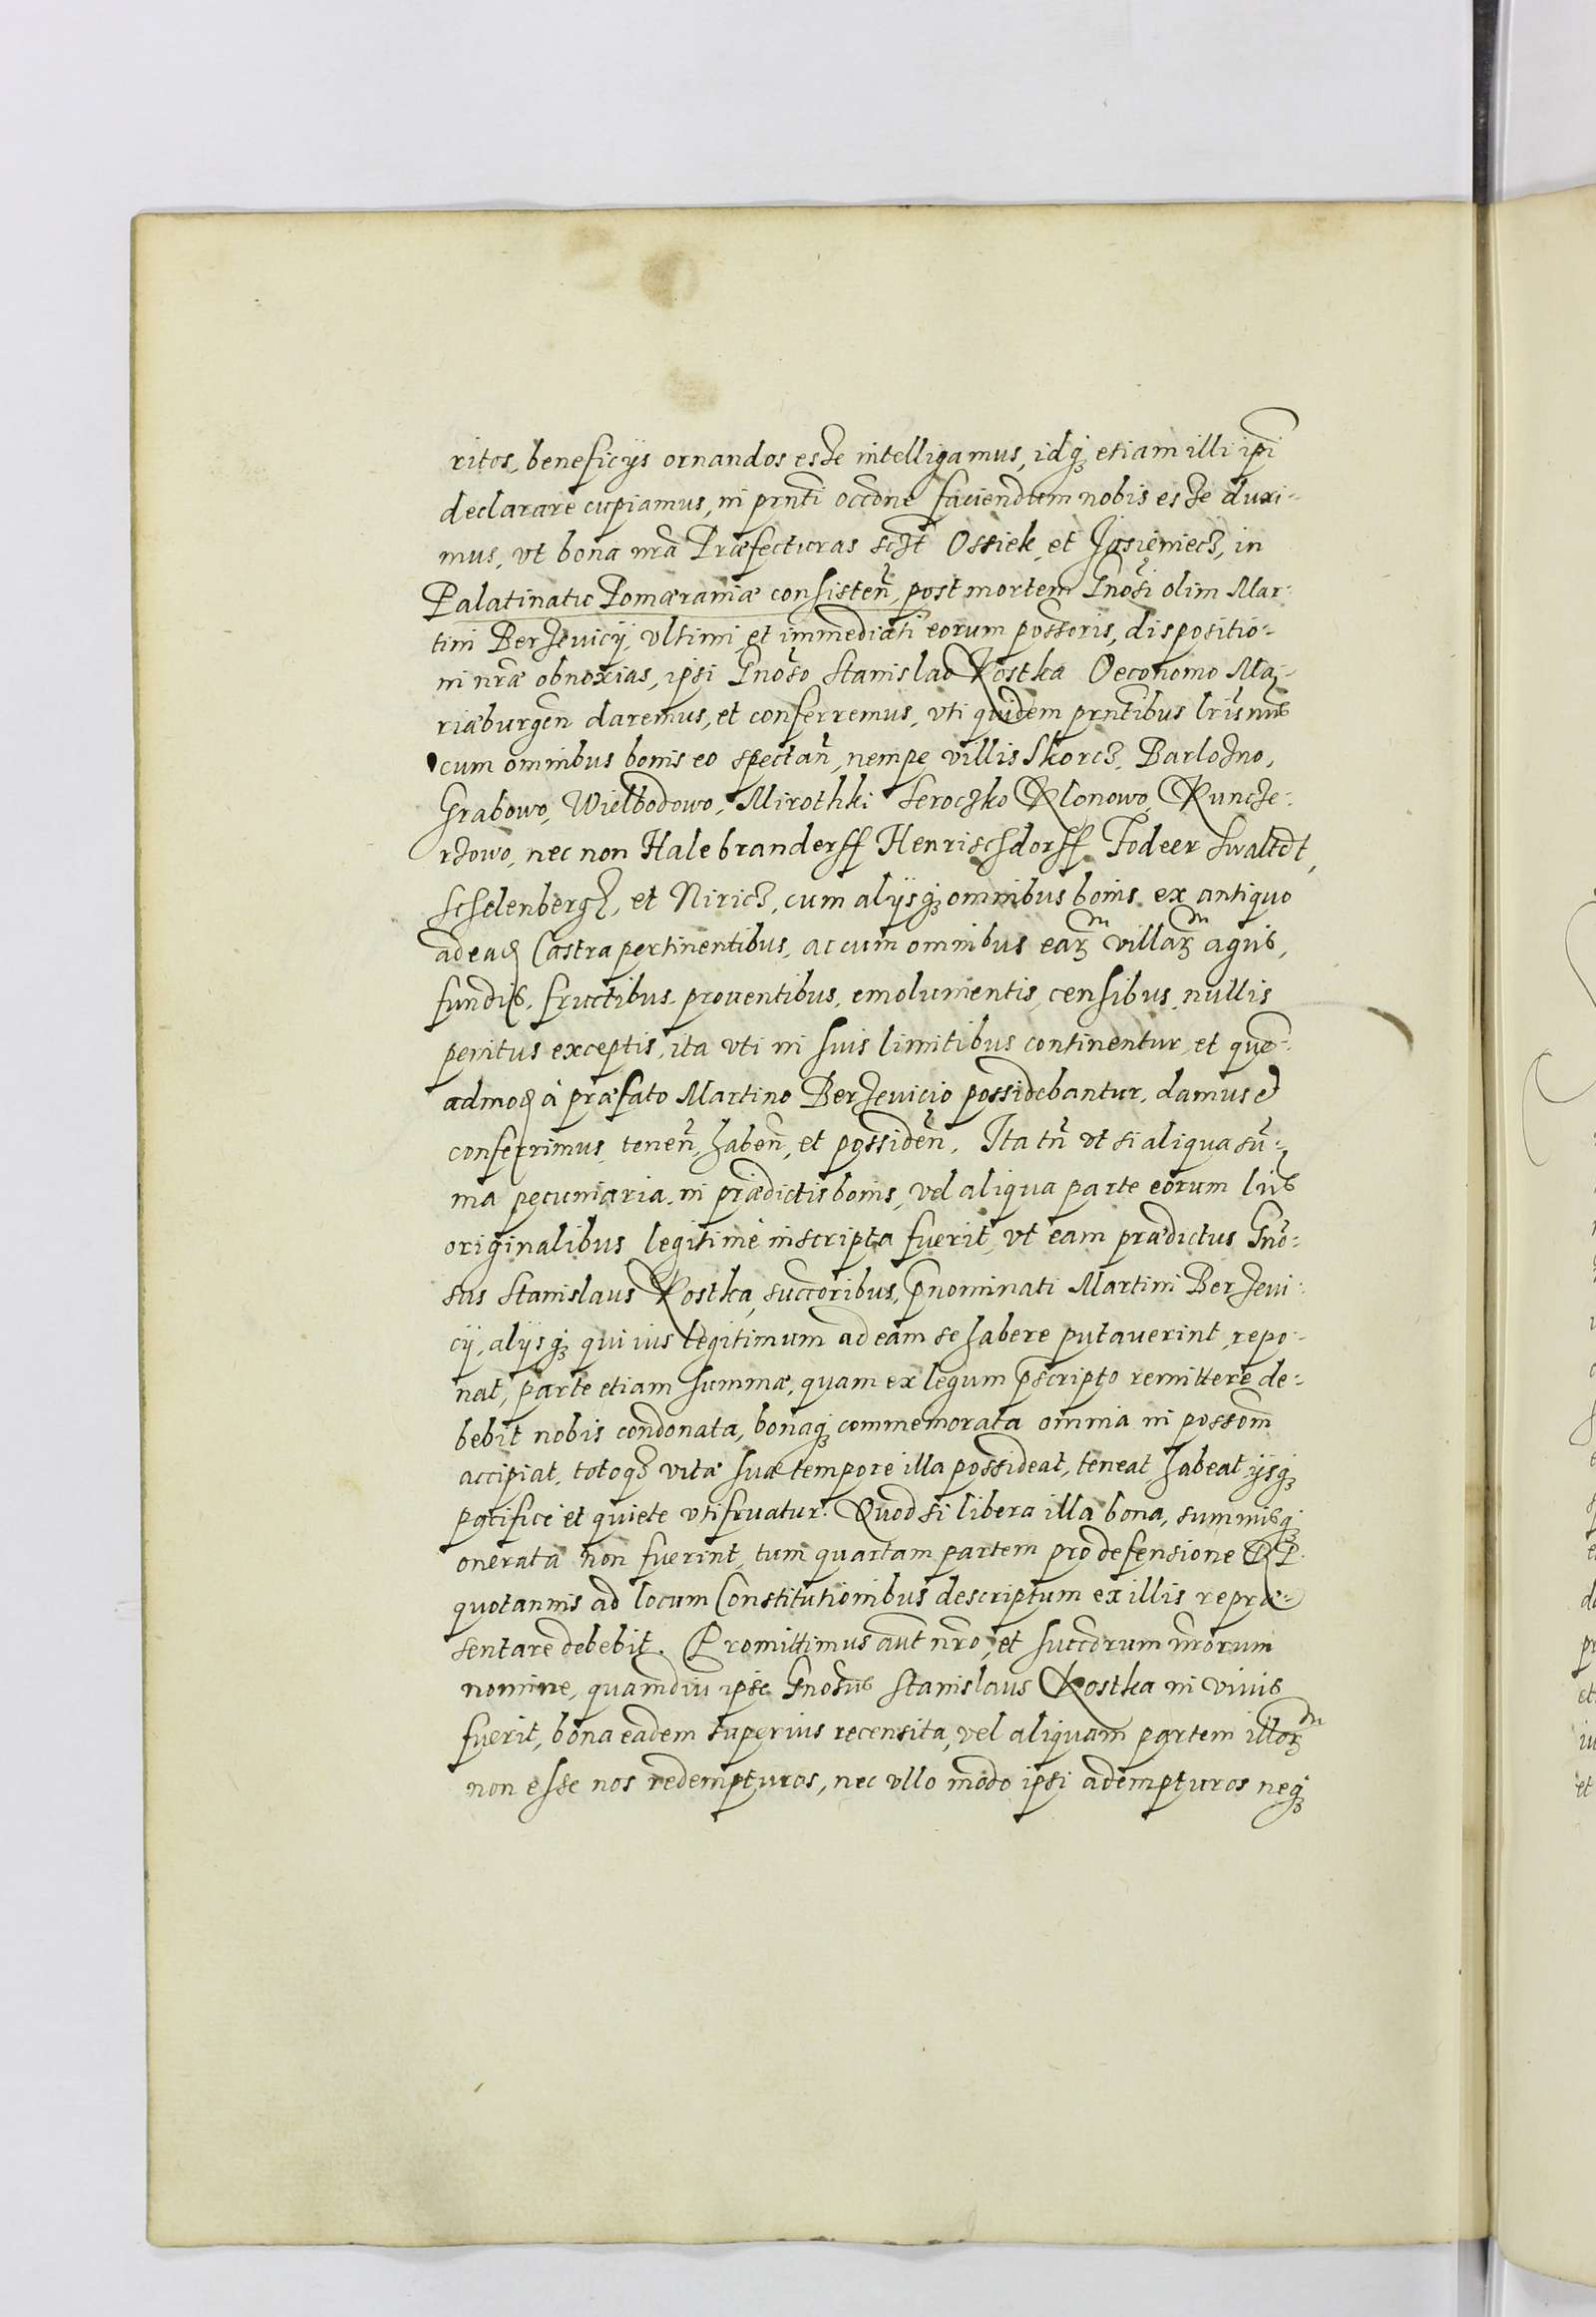 ritos, beneficijs ornandos esse intelligamus, idq́ꝫ etiam illi ip̃i
declarare cupiamus, in prñti occõne faciendum nobis esse duxi-
mus, vt bona nrã Præfecturas sczt Ossiek, et Jasieniecz, in
Palatinatu Pomæraniæ consisteñ, post mortem Gnõsi olim Mar-
tini Berzevicij, vltimi et immediati eorum possoris, dispositio-
ni nrãe obnoxias, ipsi Gnõso Stanislao Kostka Oeconomo Ma-
riæburgeñ daremus, et conferremus, vti quidem prñtibus lrĩs nrĩs
cum omnibus bonis eo spectañ, nempe villis Skorcz, Barlozno,
Grabowo, Wielbodowo, Mirothki Seroczko Klonowo, Kuncze-
rzowo, nec non Halebranderff Henrischdorff Fodeer Swaltdt,
Schelenbergk, et Niricz, cum alijsq́ꝫ omnibus bonis ex antiquo
ad ead Castra pertinentibus, ac cum omnibus earꝫm villarꝫm agris,
fundis, fructibus, prouentibus, emolumentis, censibus, nullis
penitus exceptis, ita vti in suis limitibus continentur, et que-
admod à præfato Martino Berzevicio possidebantur, damus et
conferrimus, teneñ, habeñ, et possideñ. Ita tñ vt si aliqua sũ-
ma pecuniaria, in prædictis bonis, vel aliqua parte eorum lrĩs
originalibus legitimè inscripta fuerit, vt eam prædictus Gnõ-
sus Stanislaus Kostka, succoribus, p̃nominati Martini Berzevi-
cij, alijsq́ꝫ qui ius legitimum ad eam se habere putaverint, repo-
nat, parte etiam summæ, quam ex legum p̃scripto remittere de-
bebit nobis condonata, bonaq́ꝫ commemorata omnia in possom̃
accipiat, totoqꝫ vitæ suæ tempore illa possideat, teneat, habeat, ijsq́ꝫ
pacificè et quiete vtifruatur. Quod si libera illa bona, summisq́ꝫ
onerata non fuerint, tum quartam partem pro defensione RP.
quotannis ad locum Constitutionibus descriptum ex illis repræ-
sentare debebit. Promittimus aũt nrõ, et succorum nrõrum
nomine, quamdiu ipse Gnõsus Stanislaus Kostka in viuis
fuerit, bona eadem superius recensita, vel aliquam partem illorꝫm
non esse nos redempturos, nec vllo modo ipsi adempturos neq́ꝫ